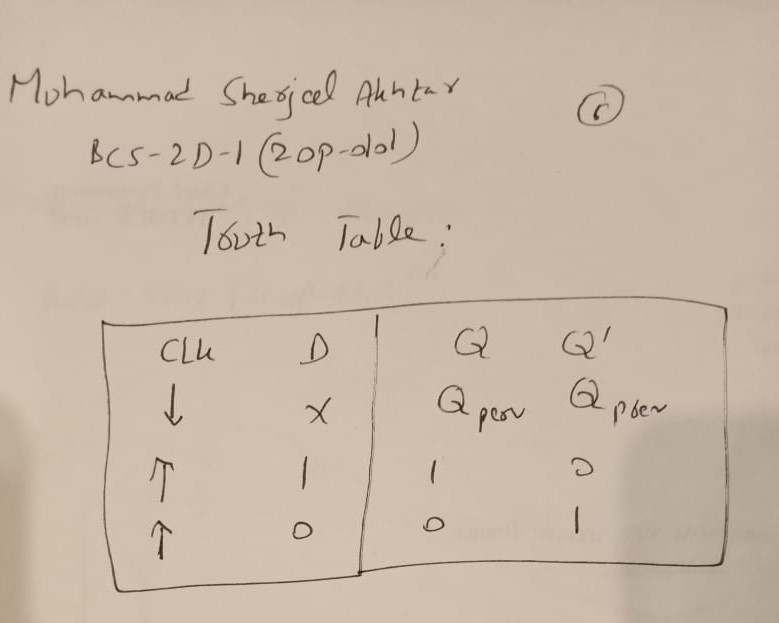 Muhammad Sherjeel Akhtar
BCS-2D-1 (20p-0101)
Truth Table:
CLK D Q Q'
↓ X Qprev Qprev
↑ 1 1 0
↑ 0 0 1